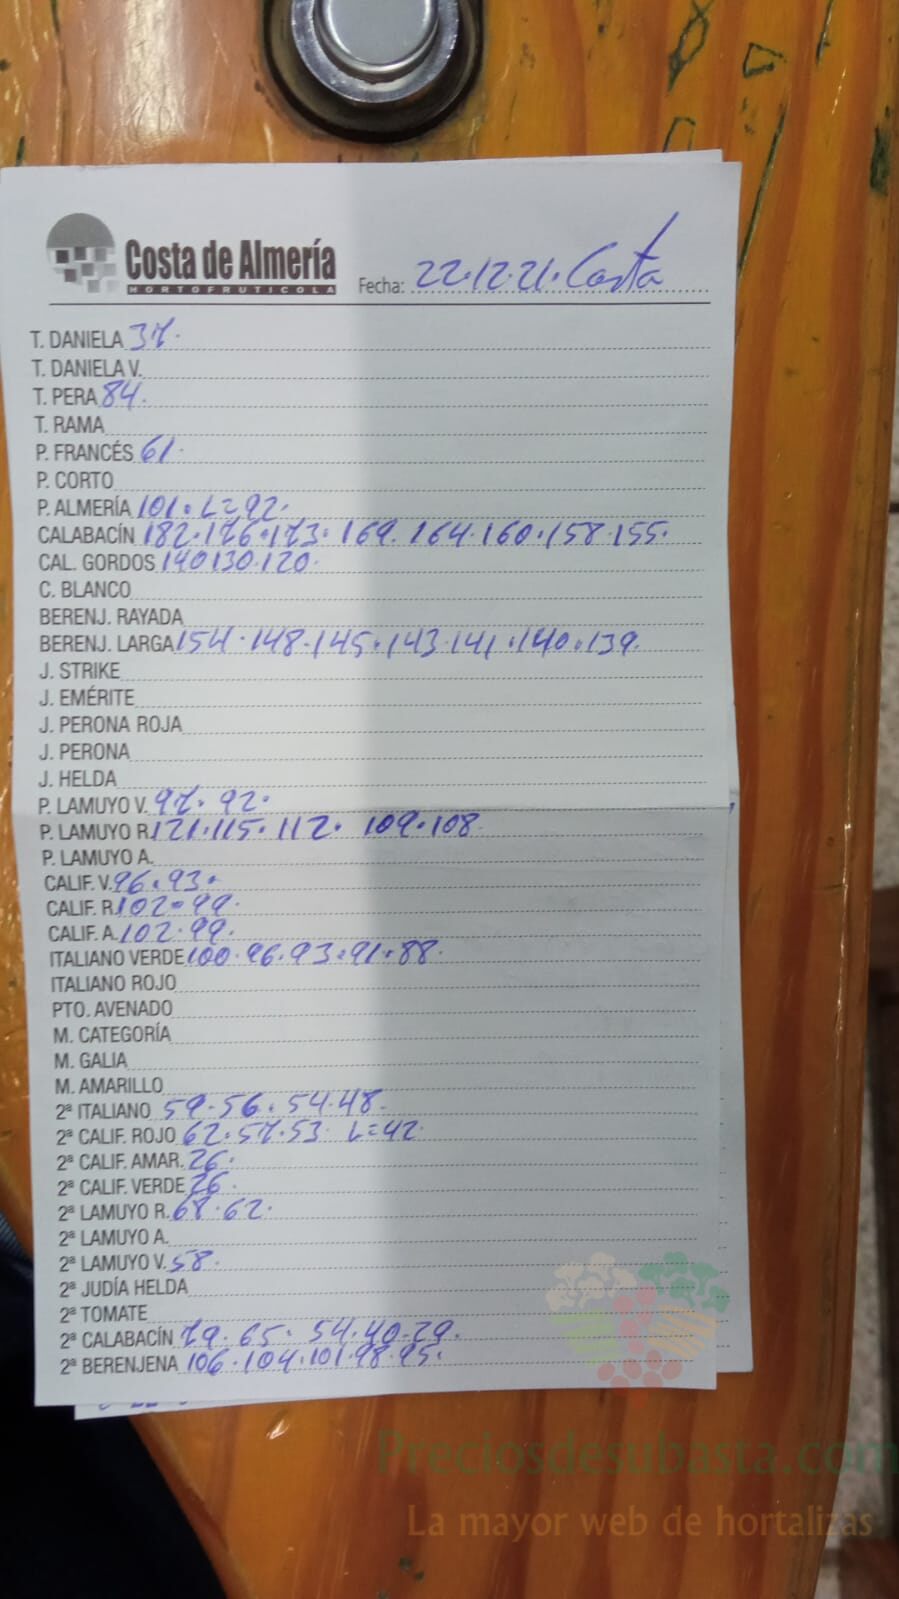 Costa de Almería
HORTOFRUTICOLA
Fecha: 22·12·21· Costa
T. DANIELA 37·
T. DANIELA V.
T. PERA 84.
T. RAMA
P. FRANCÉS 61·
P. CORTO
P. ALMERÍA 101. L=92.
CALABACÍN 182·176·173· 169. 164·160·158·155·
CAL. GORDOS 140 130·120·
C. BLANCO
BERENJ. RAYADA
BERENJ. LARGA 154·148·145·143·141·140·139·
J. STRIKE
J. EMÉRITE
J. PERONA ROJA
J. PERONA
J. HELDA
P. LAMUYO V. 97· 92·
P. LAMUYO R. 121·115· 112· 109·108
P. LAMUYO A.
CALIF. V. 96·93·
CALIF. R. 102·99·
CALIF. A. 102·99·
ITALIANO VERDE 100·96·93·91·88·
ITALIANO ROJO
PTO. AVENADO
M. CATEGORÍA
M. GALIA
M. AMARILLO
2ª ITALIANO 59·56· 54·48·
2ª CALIF. ROJO 62·57·53 L=42
2ª CALIF. AMAR. 26·
2ª CALIF. VERDE 26·
2ª LAMUYO R. 68·62·
2ª LAMUYO A.
2ª LAMUYO V. 58·
2ª JUDÍA HELDA
2ª TOMATE
2ª CALABACÍN 79· 65· 54·40·29·
2ª BERENJENA 106·104·101·98·95·
Preciosdesubasta.com
La mayor web de hortalizas